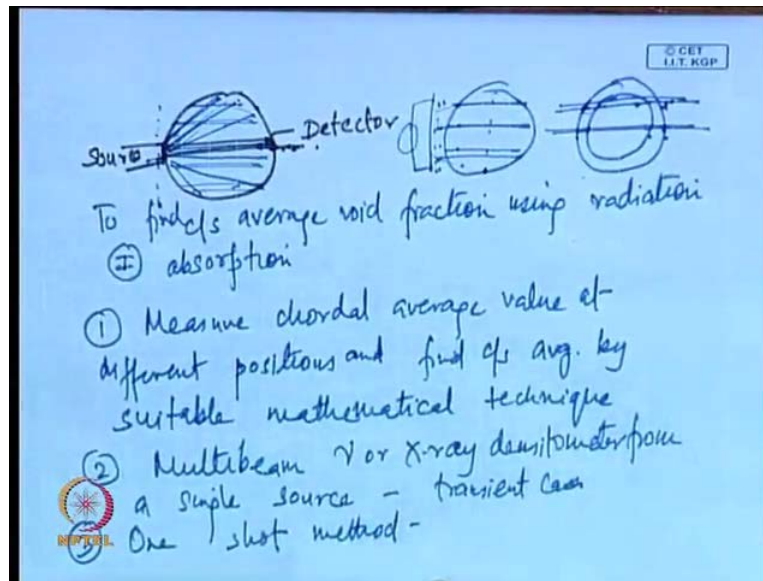 © CET
I.I.T. KGP
Source
Detector
To find c/s average void fraction using radiation
I absorption
1 Measure chordal average value at
different positions and find c/s avg. by
suitable mathematical technique
2 Multibeam γ or X-ray densitometer from
a single source - transient
3 One shot method -
NPTEL